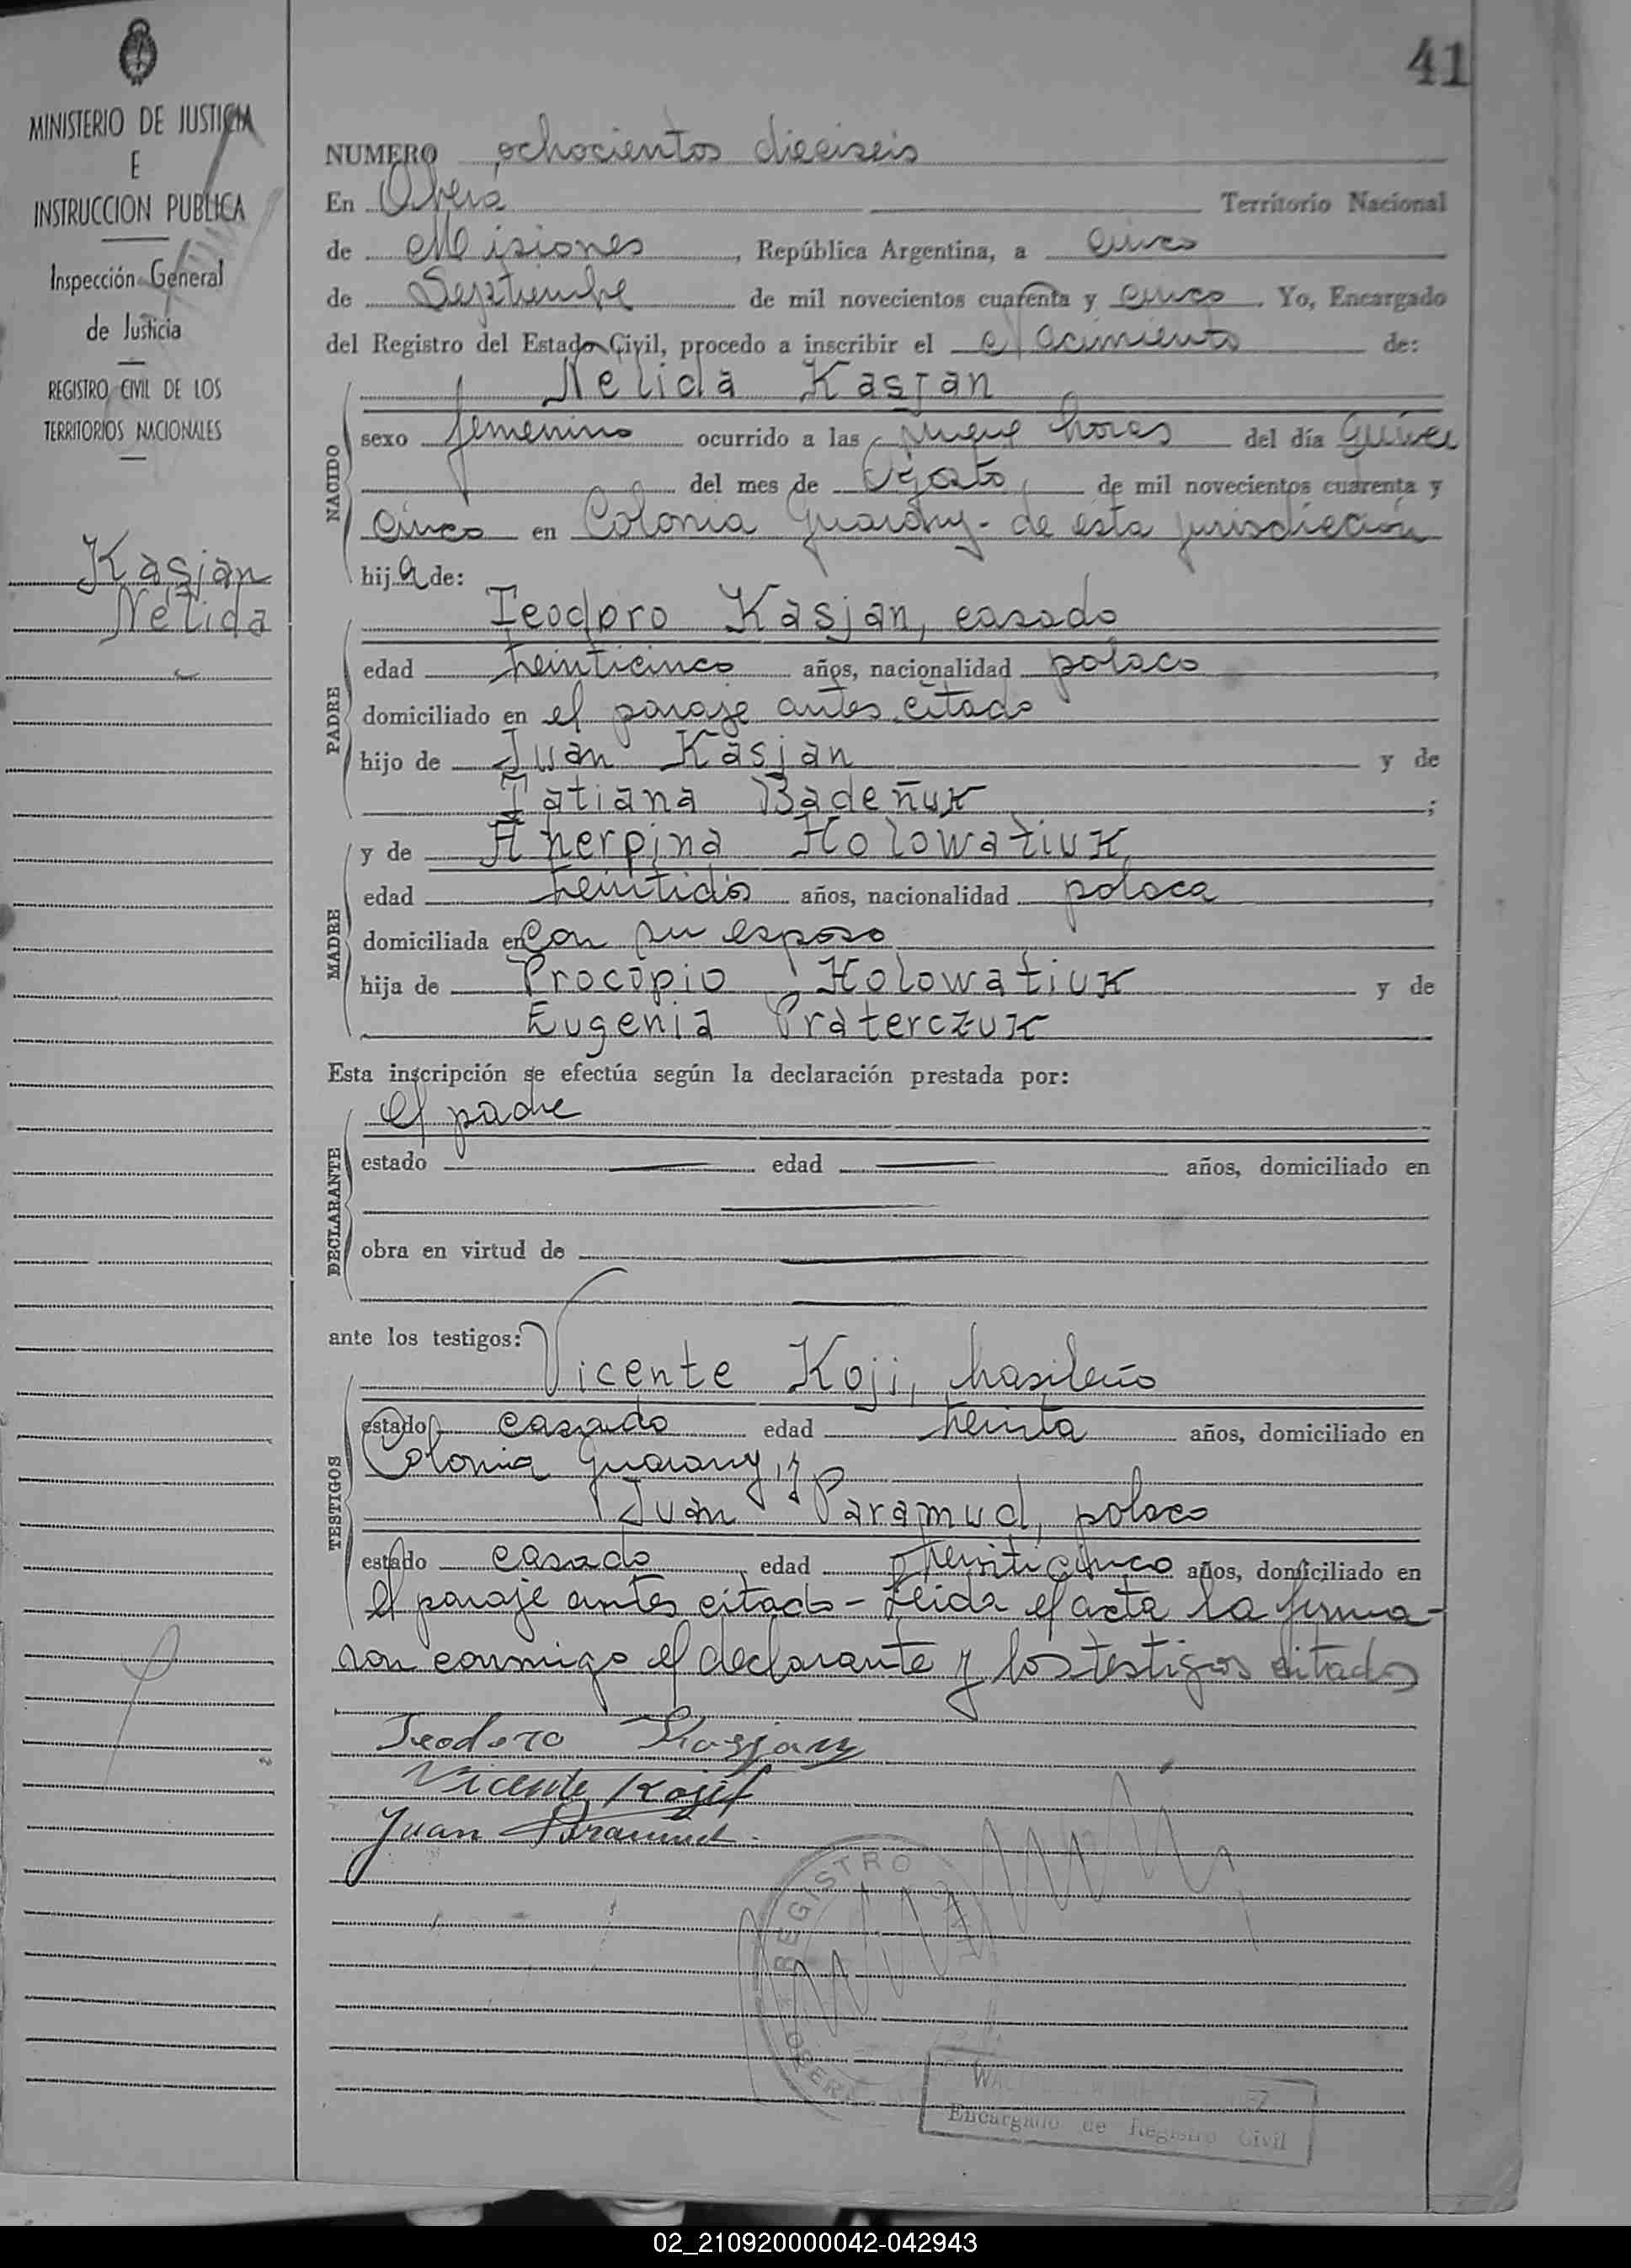 41
MINISTERIO DE JUSTICIA
E
INSTRUCCION PUBLICA
Inspección General
de Justicia
REGISTRO CIVIL DE LOS
TERRITORIOS NACIONALES
Kasjan
Nélida
NUMERO ochocientos dieciseis
En Oberá Territorio Nacional
de Misiones, República Argentina, a cinco
de Septiembre de mil novecientos cuarenta y cinco. Yo, Encargado
del Registro del Estado Civil, procedo a inscribir el nacimiento de:
Nélida Kasjan
NACIDO
sexo femenino ocurrido a las nueve horas del día Quince
del mes de Agosto, de mil novecientos cuarenta y
cinco en Colonia Guarany - de esta jurisdicción
hija de:
Teodoro Kasjan, casado
PADRE
edad veinticinco años, nacionalidad polaco,
domiciliado en el paraje antes citado
hijo de Juan Kasjan y de
Tatiana Badeñuk;
y de Aherpina Holowatiuk,
MADRE
edad veintidós años, nacionalidad polaca,
domiciliada en con su esposo
hija de Procopio Holowatiuk y de
Eugenia Praterczuk
Esta inscripción se efectúa según la declaración prestada por:
el padre
DECLARANTE
estado edad años, domiciliado en
obra en virtud de
ante los testigos:
Vicente Koji, brasileño
TESTIGOS
estado casado edad treinta años, domiciliado en
Colonia Guarany, y
Juan Paramud, polaco
estado casado, edad veinticinco años, domiciliado en
el paraje antes citado - Leida el acta la firma-
ron conmigo el declarante y los testigos citados
Teodoro Kasjan
Vicente Kojif
Juan Paramud.
REGISTRO CIVIL
OBERA
Encargado de Registro Civil
02_210920000042-042943